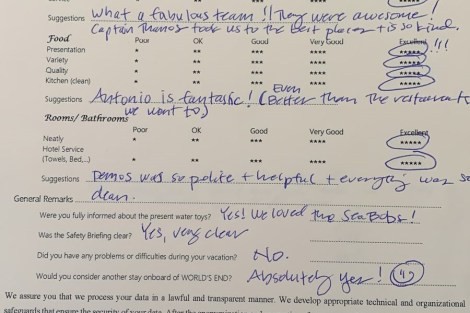 Suggestions What a fabulous team!! They were awesome!
Captain Thanos took us to the best places + is so kind.
Food Poor OK Good Very Good Excellent
Presentation * ** *** **** ***** !!!
Variety * ** *** **** *****
Quality * ** *** **** *****
Kitchen (clean) * ** *** **** *****
Even
Suggestions Antonio is fantastic! (Better than the restaurants
we went to)
Rooms/ Bathrooms
Poor OK Good Very Good Excellent
Neatly * ** *** **** *****
Hotel Service
(Towels, Bed,..) * ** *** **** *****
Suggestions Demos was so polite + helpful + everything was so
clean.
General Remarks
Were you fully informed about the present water toys? Yes! We loved the SeaBobs!
Was the Safety Briefing clear? Yes, very clear
Did you have any problems or difficulties during your vacation? No.
Would you consider another stay onboard of WORLD'S END? Absolutely yes!
We assure you that we process your data in a lawful and transparent manner. We develop appropriate technical and organizational
safeguards that ensure the security of your data.